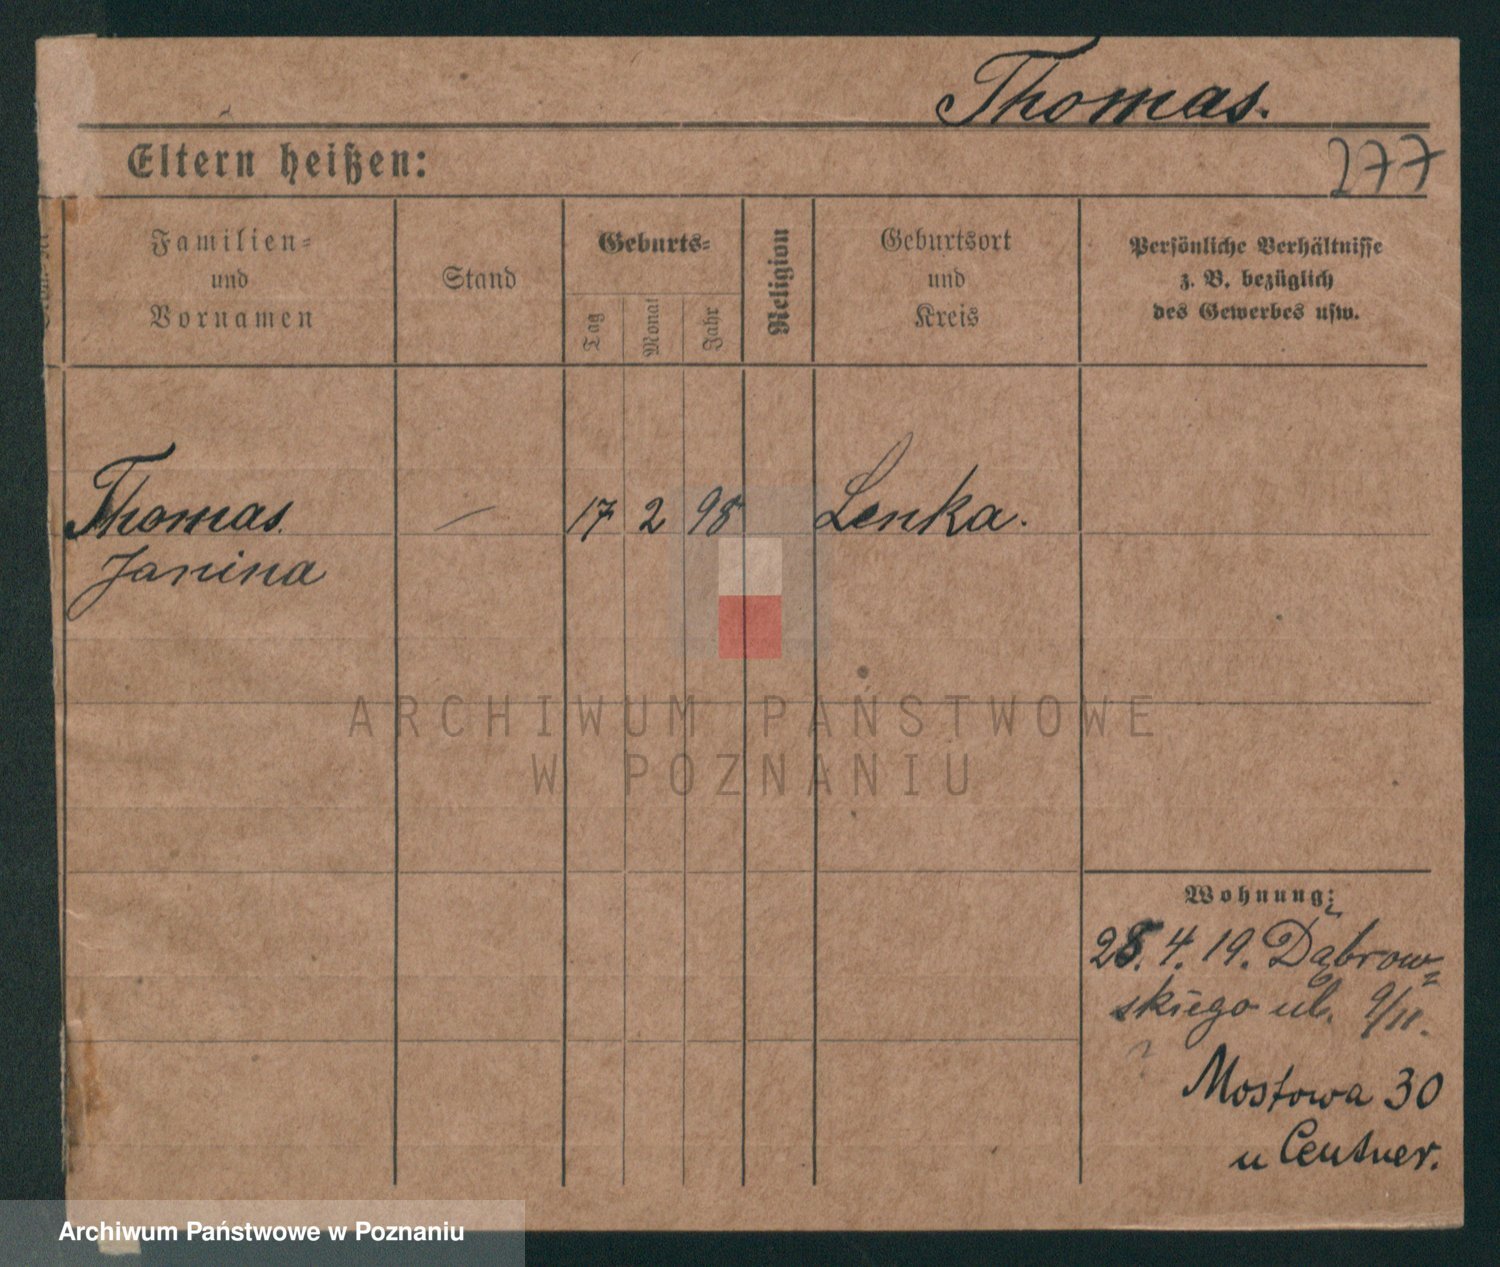 Thomas.
Eltern heißen:
277
Familien-
und
Vornamen
Stand
Geburts-
Tag
Monat
Jahr
Religion
Geburtsort
und
Kreis
Persönliche Verhältnisse
z. B. bezüglich
des Gewerbes usw.
Thomas. — 17 2 98 Lenka.
Janina
ARCHIWUM PAŃSTWOWE
W POZNANIU
Wohnung:
28. 4. 19. Dąbrow=
skiego ul. 9/II.
Mostowa 30
u Centner.
Archiwum Państwowe w Poznaniu